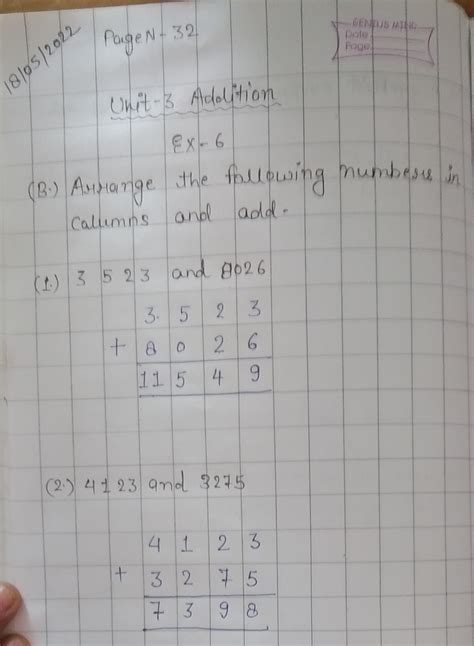 18/05/2022
Page N - 32
GENIUS MIND
Date
Page
Unit-3 Addition
Ex-6
(B.) Arrange the following numbers in
Calumns and add.
(1.) 3 5 2 3 and 8026
3. 5 2 3
+ 8 0 2 6
11 5 4 9
(2.) 4123 and 3275
4 1 2 3
+ 3 2 7 5
7 3 9 8